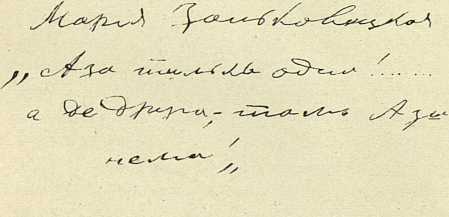 Мария Заньковецкая
„Аза тилько одна!......
а де друга, – тамъ Азы
нема!"